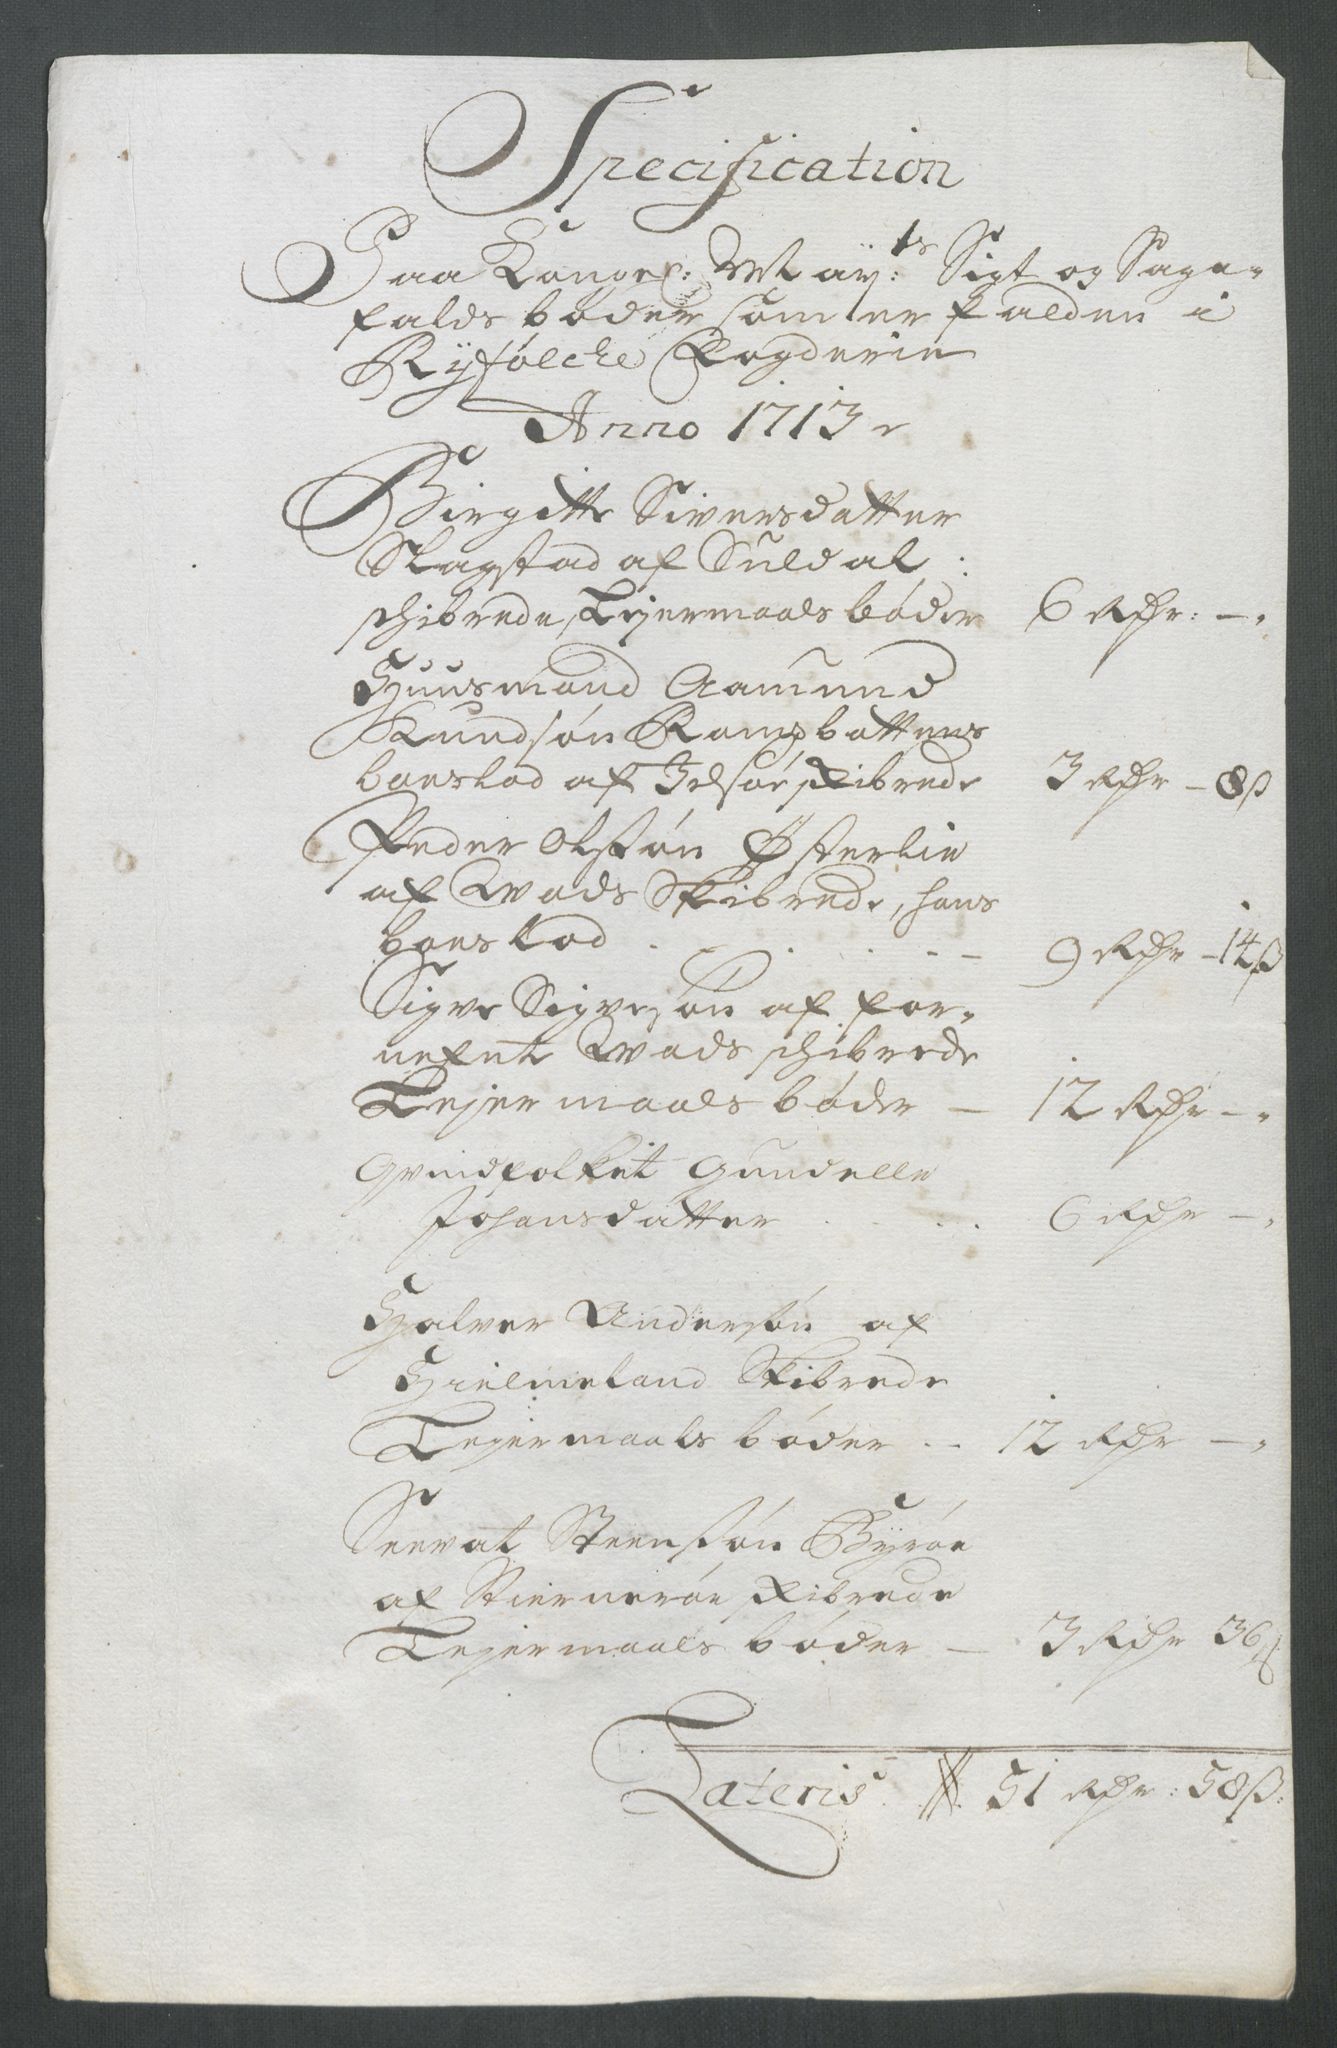 Specification
Paa Kongel: May:ts Sigt og Sage-
falds bøder som er falden i
Ryfølche Fogderie
Anno 1713
Birgitte Siversdatter
Slagstad af Suldal
schibrede, Lejermaals bøder 6 Rdr: -
Huusmand Aamund
Knudsøn Rampbattens
boeslod af Jelsøe skibrede 3 Rdr - 8 ß
Peder Olssøn Østerlie
af Wads Skibrede, hans
boeslod . . . . - - 9 Rdr - 14 ß
Sigve Sigvesøn af for-
nefnt Wads schibrede
Lejermaals bøder - 12 Rdr -
Qvindfolket Gundelle
Johansdatter . . . . 6 Rdr -
Halvor Andersøn af
Hielmeland Skibrede
Lejermaals bøder . . 12 Rdr -
Seevat Steensøn Byrøe
af Stiernerøe skibrede
Lejermaals bøder - 3 Rdr 36 ß
Lateris 51 Rdr: 58 ß: